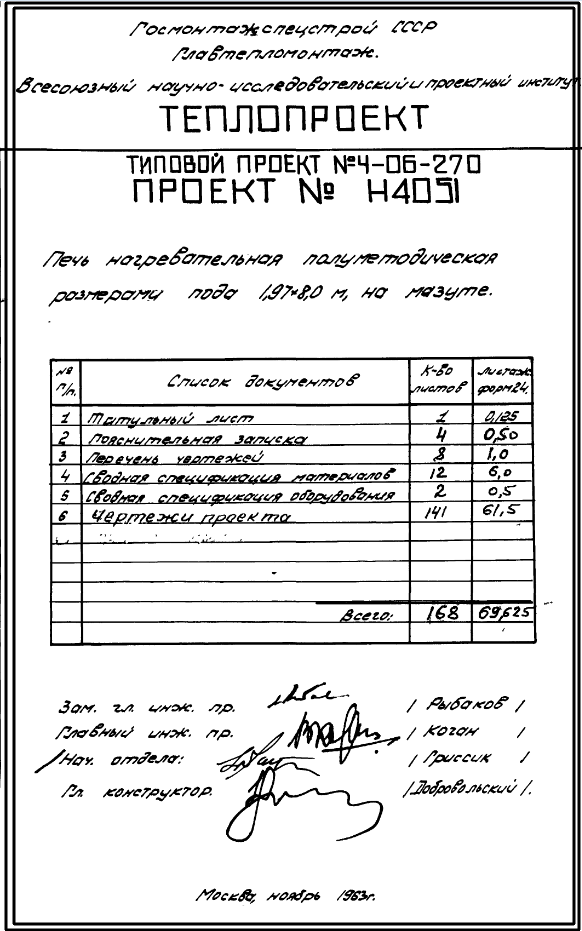 Госмонтажспецстрой СССР
Главтепломонтаж.
Всесоюзный научно-исследовательский и проектный институт
ТЕПЛОПРОЕКТ
ТИПОВОЙ ПРОЕКТ №4-06-270
ПРОЕКТ № Н4051
Печь нагревательная полуметодическая
размерами пода 1,97×8,0 м, на мазуте.
№ п/п. Список документов К-во листов Листаж форм 24.
1 Титульный лист 1 0,125
2 Пояснительная записка 4 0,50
3 Перечень чертежей 8 1,0
4 Сводная спецификация материалов 12 6,0
5 Сводная спецификация оборудования 2 0,5
6 Чертежи проекта 141 61,5
Всего: 168 69,625
Зам. гл. инж. пр. / Рыбаков /
Главный инж. пр. / Коган /
Нач. отдела: / Гриссик /
Гл. конструктор. / Добровольский /.
Москва, ноябрь 1963г.